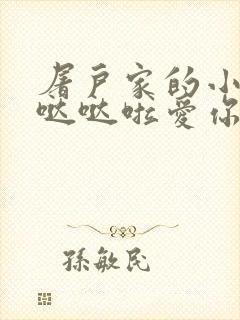 屠户家的小
哒哒啦爱你
孙敏民